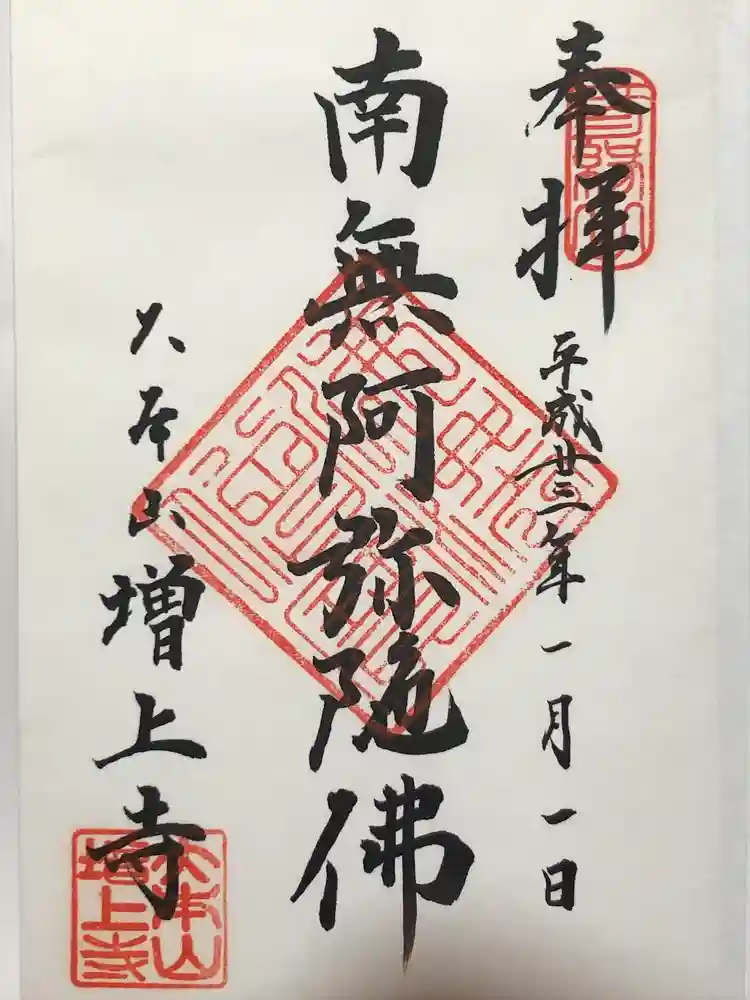 奉拝
平成廿三年一月一日
南無阿弥陀佛
大本山増上寺
大本山
増上寺